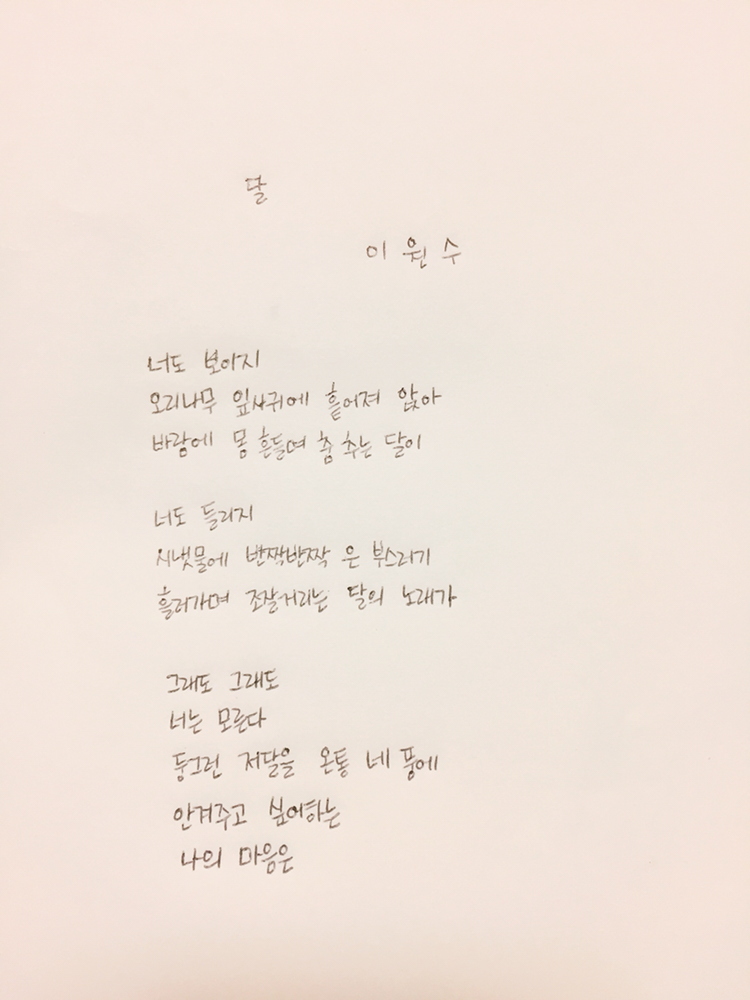 달
이원수
너도 보아지
오리나무 잎사귀에 흩어져 앉아
바람에 몸 흔들며 춤 추는 달이
너도 들리지
시냇물에 반짝반짝 은 부스러기
흘러가며 조잘거리는 달의 노래가
그래도 그래도
너는 모른다
둥그런 저달을 온통 네 품에
안겨주고 싶어하는
나의 마음은